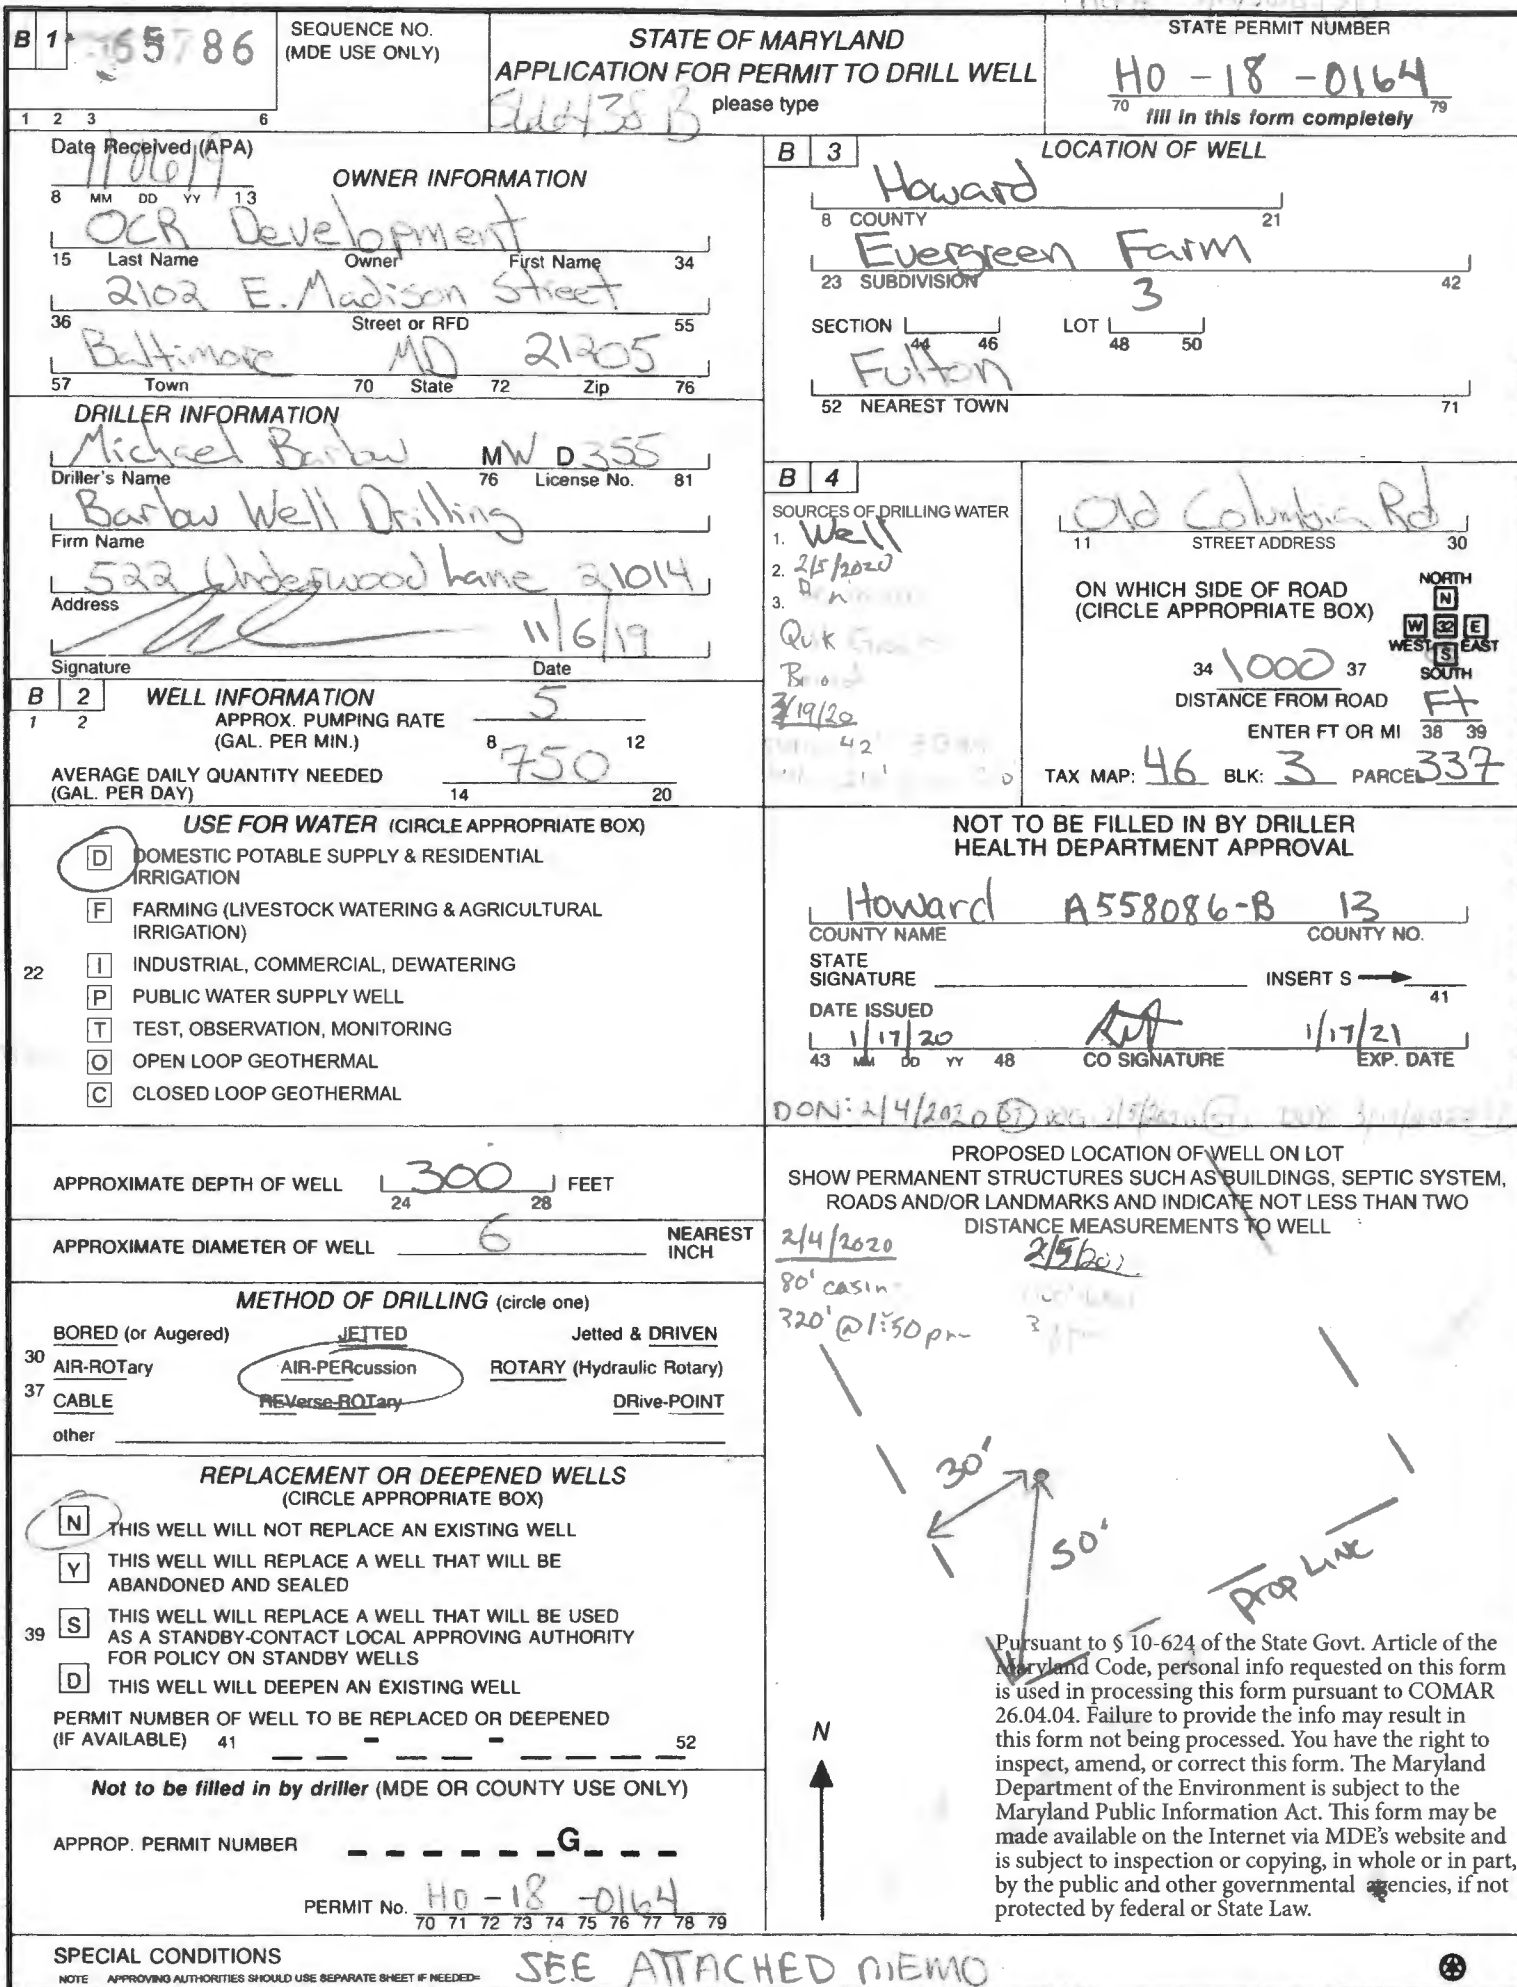 B 1
65786
SEQUENCE NO.
(MDE USE ONLY)
1 2 3 6
STATE OF MARYLAND
APPLICATION FOR PERMIT TO DRILL WELL
please type
STATE PERMIT NUMBER
HO - 18 - 0164
70 fill in this form completely 79
Date Received (APA)
110619
8 MM DD YY 13
OWNER INFORMATION
OCR Development
15 Last Name Owner First Name 34
2102 E. Madison Street
36 Street or RFD 55
Baltimore MD 21205
57 Town 70 State 72 Zip 76
DRILLER INFORMATION
Michael Barlow MW D 355
Driller's Name 76 License No. 81
Barlow Well Drilling
Firm Name
522 Underwood Lane 21014
Address
11/6/19
Signature Date
B 2 WELL INFORMATION
1 2
APPROX. PUMPING RATE 5
(GAL. PER MIN.) 8 12
AVERAGE DAILY QUANTITY NEEDED 750
(GAL. PER DAY) 14 20
USE FOR WATER (CIRCLE APPROPRIATE BOX)
D DOMESTIC POTABLE SUPPLY & RESIDENTIAL
IRRIGATION
F FARMING (LIVESTOCK WATERING & AGRICULTURAL
IRRIGATION)
22 I INDUSTRIAL, COMMERCIAL, DEWATERING
P PUBLIC WATER SUPPLY WELL
T TEST, OBSERVATION, MONITORING
O OPEN LOOP GEOTHERMAL
C CLOSED LOOP GEOTHERMAL
APPROXIMATE DEPTH OF WELL 300 FEET
24 28
APPROXIMATE DIAMETER OF WELL 6 NEAREST
INCH
METHOD OF DRILLING (circle one)
BORED (or Augered) JETTED Jetted & DRIVEN
30 AIR-ROTary AIR-PERcussion ROTARY (Hydraulic Rotary)
37 CABLE REVerse-ROTary DRive-POINT
other
REPLACEMENT OR DEEPENED WELLS
(CIRCLE APPROPRIATE BOX)
N THIS WELL WILL NOT REPLACE AN EXISTING WELL
Y THIS WELL WILL REPLACE A WELL THAT WILL BE
ABANDONED AND SEALED
39 S THIS WELL WILL REPLACE A WELL THAT WILL BE USED
AS A STANDBY-CONTACT LOCAL APPROVING AUTHORITY
FOR POLICY ON STANDBY WELLS
D THIS WELL WILL DEEPEN AN EXISTING WELL
PERMIT NUMBER OF WELL TO BE REPLACED OR DEEPENED
(IF AVAILABLE) 41 - - 52
Not to be filled in by driller (MDE OR COUNTY USE ONLY)
APPROP. PERMIT NUMBER G
PERMIT No. HO - 18 - 0164
70 71 72 73 74 75 76 77 78 79
B 3 LOCATION OF WELL
Howard
8 COUNTY 21
Evergreen Farm
23 SUBDIVISION 42
3
SECTION LOT
44 46 48 50
Fulton
52 NEAREST TOWN 71
B 4
SOURCES OF DRILLING WATER
1. Well
2. 2/5/2020
3.
Quik
3/19/20
42'
Old Columbia Rd
11 STREET ADDRESS 30
ON WHICH SIDE OF ROAD
(CIRCLE APPROPRIATE BOX)
NORTH
N
W 32 E
WEST EAST
S
SOUTH
34 1000 37
DISTANCE FROM ROAD Ft
ENTER FT OR MI 38 39
TAX MAP: 46 BLK: 3 PARCEL 337
NOT TO BE FILLED IN BY DRILLER
HEALTH DEPARTMENT APPROVAL
Howard A558086-B 13
COUNTY NAME COUNTY NO.
STATE
SIGNATURE INSERT S
41
DATE ISSUED
1/17/20 1/17/21
43 MM DD YY 48 CO SIGNATURE EXP. DATE
DON: 2/4/2020
PROPOSED LOCATION OF WELL ON LOT
SHOW PERMANENT STRUCTURES SUCH AS BUILDINGS, SEPTIC SYSTEM,
ROADS AND/OR LANDMARKS AND INDICATE NOT LESS THAN TWO
DISTANCE MEASUREMENTS TO WELL
2/4/2020
80' casin
320' @ 1:50 pm
30'
50'
prop LINE
N
Pursuant to § 10-624 of the State Govt. Article of the
Maryland Code, personal info requested on this form
is used in processing this form pursuant to COMAR
26.04.04. Failure to provide the info may result in
this form not being processed. You have the right to
inspect, amend, or correct this form. The Maryland
Department of the Environment is subject to the
Maryland Public Information Act. This form may be
made available on the Internet via MDE's website and
is subject to inspection or copying, in whole or in part,
by the public and other governmental agencies, if not
protected by federal or State Law.
SPECIAL CONDITIONS
NOTE APPROVING AUTHORITIES SHOULD USE SEPARATE SHEET IF NEEDED=
SEE ATTACHED MEMO